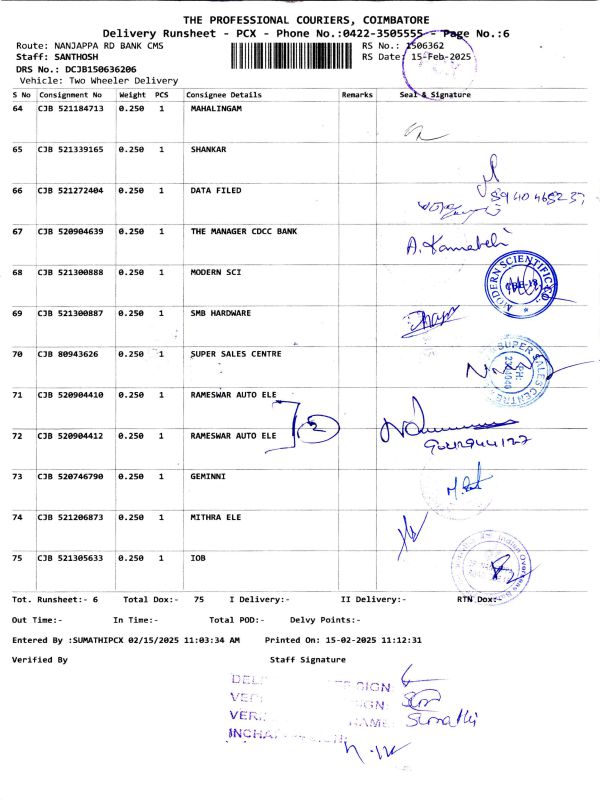 THE PROFESSIONAL COURIERS, COIMBATORE
Delivery Runsheet - PCX - Phone No.:0422-3505555 - Page No.:6
Route: NANJAPPA RD BANK CMS RS No.: 1506362
Staff: SANTHOSH RS Date: 15-Feb-2025
DRS No.: DCJB150636206
Vehicle: Two Wheeler Delivery
S No Consignment No Weight PCS Consignee Details Remarks Seal & Signature
64 CJB 521184713 0.250 1 MAHALINGAM
65 CJB 521339165 0.250 1 SHANKAR
66 CJB 521272404 0.250 1 DATA FILED
67 CJB 520904639 0.250 1 THE MANAGER CDCC BANK
68 CJB 521300888 0.250 1 MODERN SCI
MODERN SCIENTIFIC CO
69 CJB 521300887 0.250 1 SMB HARDWARE
70 CJB 80943626 0.250 1 SUPER SALES CENTRE
SUPER SALES CENTRE
71 CJB 520904410 0.250 1 RAMESWAR AUTO ELE
2
72 CJB 520904412 0.250 1 RAMESWAR AUTO ELE
73 CJB 520746790 0.250 1 GEMINNI
74 CJB 521206873 0.250 1 MITHRA ELE
75 CJB 521305633 0.250 1 IOB
Indian Overseas
Tot. Runsheet:- 6 Total Dox:- 75 I Delivery:- II Delivery:- RTN Dox:-
Out Time:- In Time:- Total POD:- Delvy Points:-
Entered By :SUMATHIPCX 02/15/2025 11:03:34 AM Printed On: 15-02-2025 11:12:31
Verified By Staff Signature
SIGN:
SIGN:
NAME: Sumathi